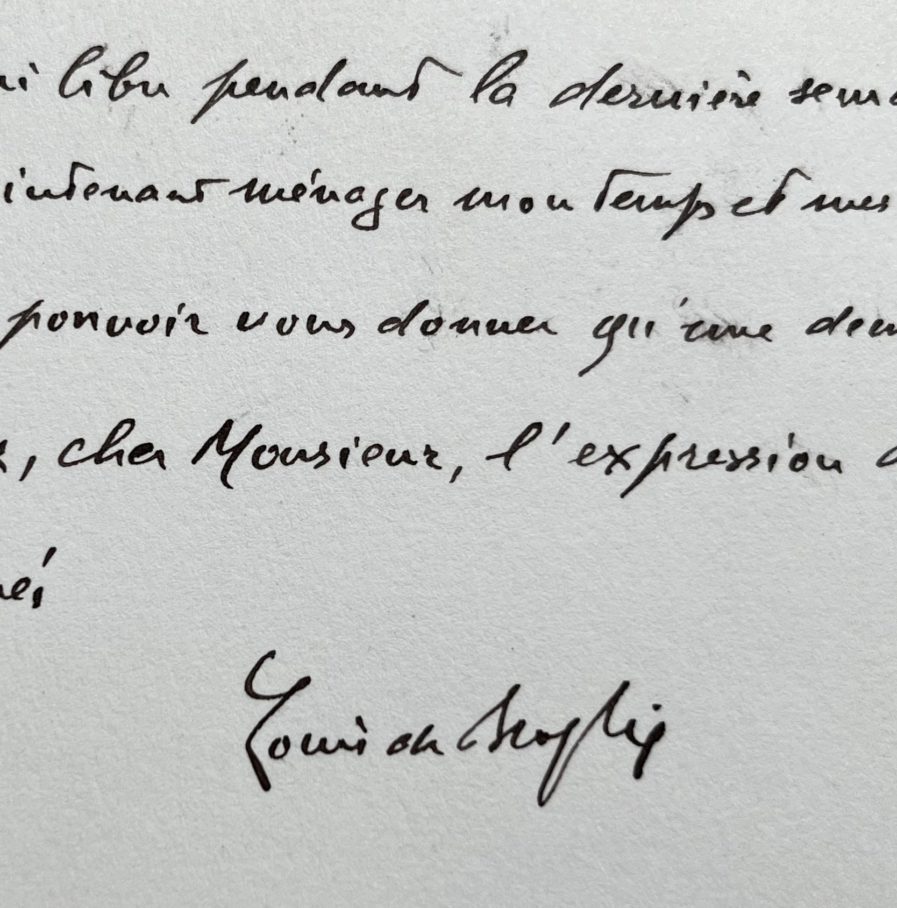 libre pendant la dernière sema
intenant ménager mon temps et mes
pouvoir vous donner qu'une dem
, cher Monsieur, l'expression d
és
Louis de Broglie